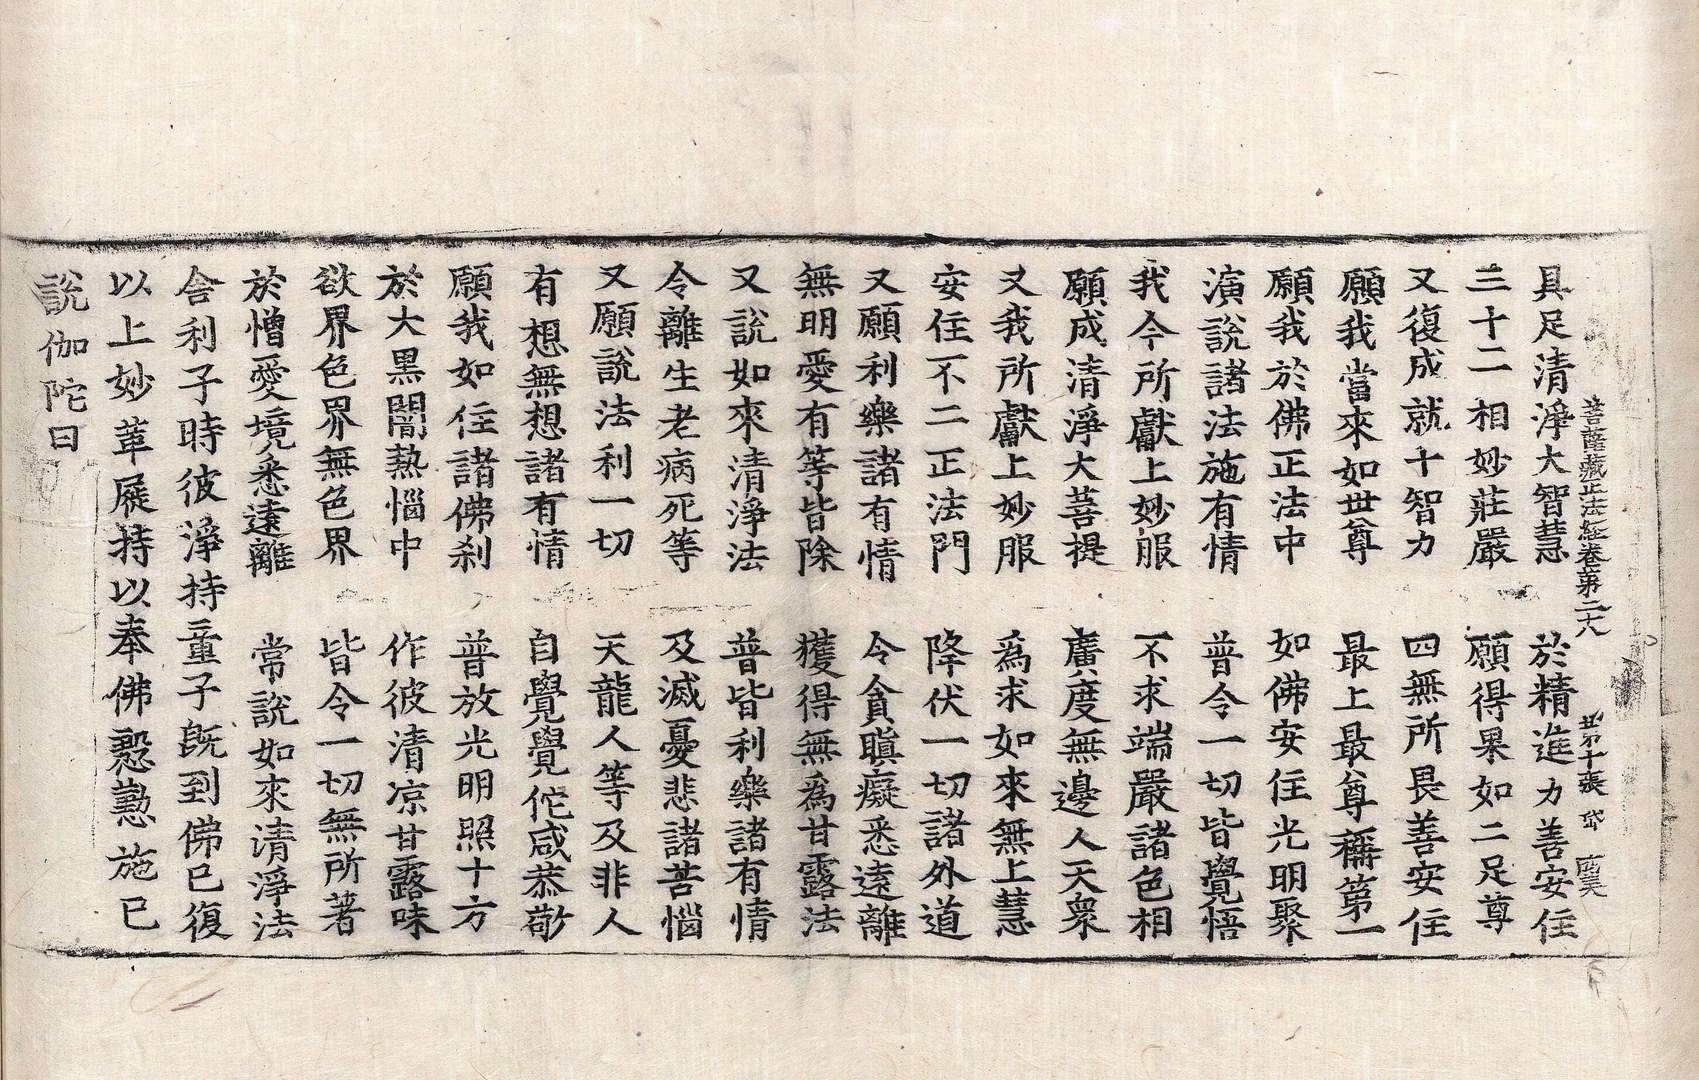 菩薩藏正法經卷第二十八 第十張 岱
具足清淨大智慧 於精進力善安住
三十二相妙莊嚴 願得果如二足尊
又復成就十智力 四無所畏善安住
願我當來如世尊 最上最尊稱第一
願我於佛正法中 如佛安住光明聚
演說諸法施有情 普令一切皆覺悟
我今所獻上妙服 不求端嚴諸色相
願成清淨大菩提 廣度無邊人天衆
又我所獻上妙服 爲求如來無上慧
安住不二正法門 降伏一切諸外道
又願利樂諸有情 令貪瞋癡悉遠離
無明愛有等皆除 獲得無爲甘露法
又說如來清淨法 普皆利樂諸有情
令離生老病死等 及滅憂悲諸苦惱
又願說法利一切 天龍人等及非人
有想無想諸有情 自覺覺佗咸恭敬
願我如住諸佛刹 普放光明照十方
於大黑闇熱惱中 作彼清涼甘露味
欲界色界無色界 皆令一切無所著
於憎愛境悉遠離 常說如來清淨法
舍利子時彼淨持童子旣到佛已復
以上妙革屣持以奉佛慇懃施已
說伽陀曰